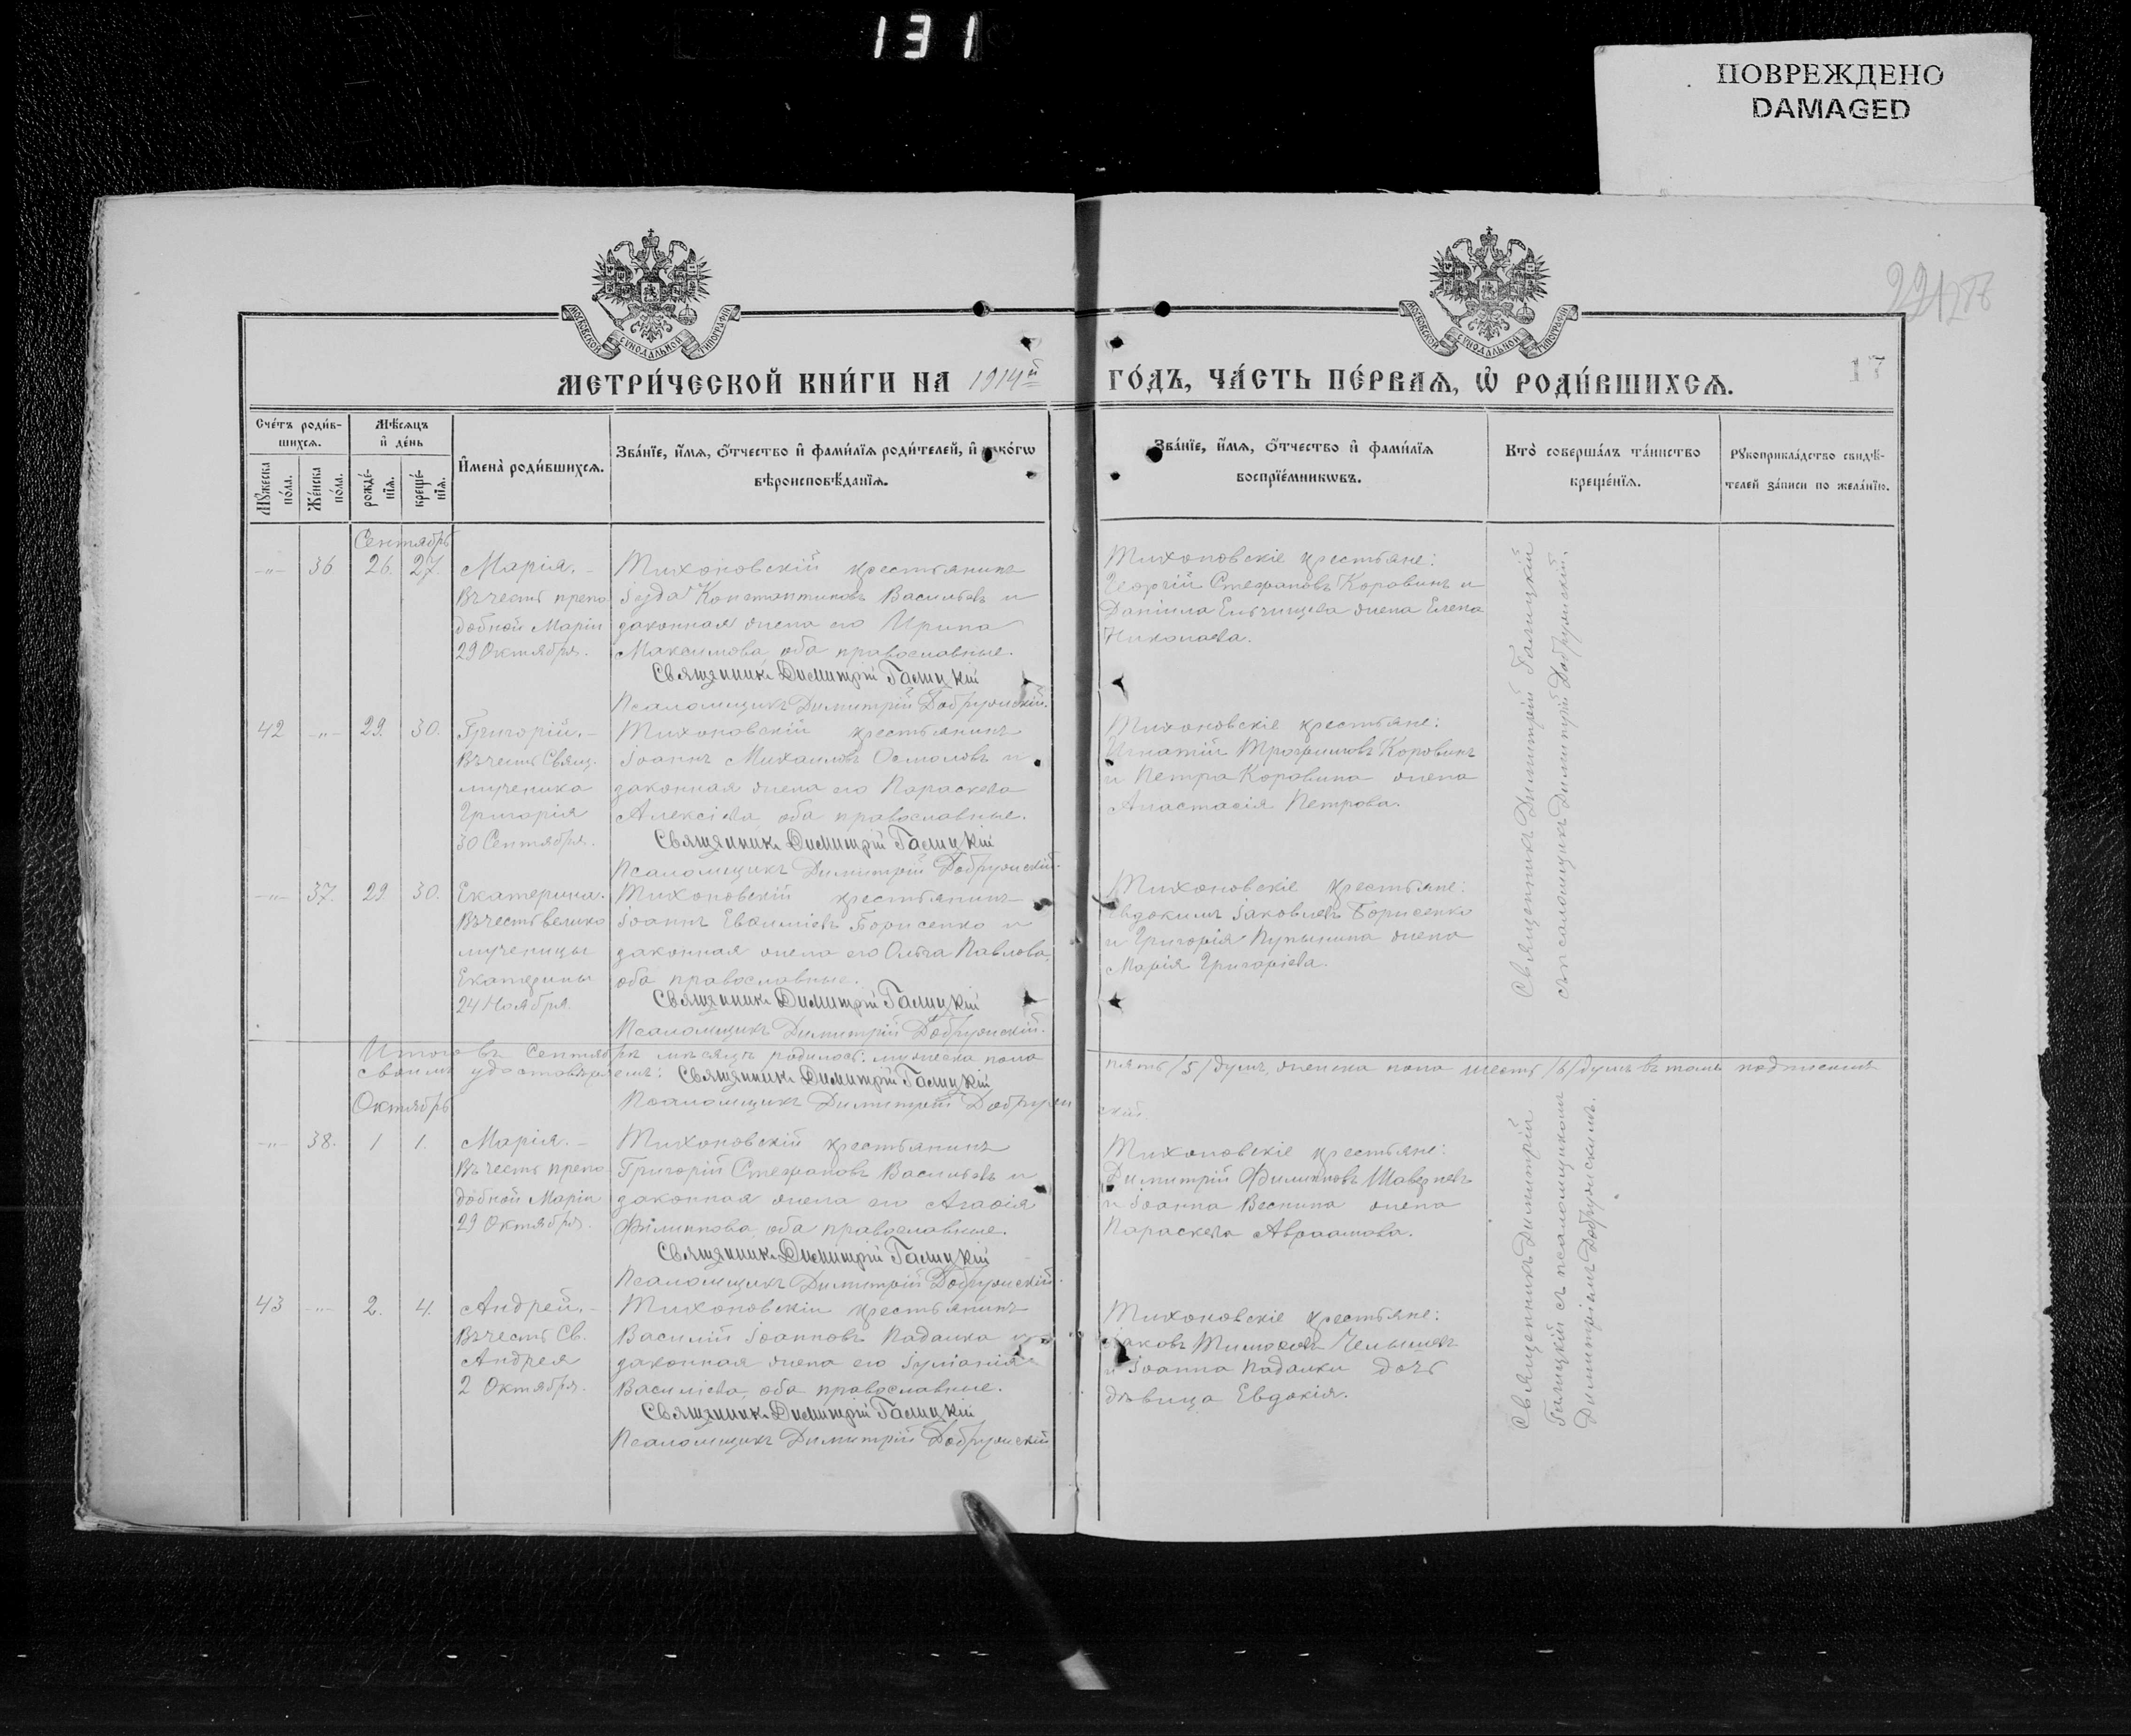 131
ПОВРЕЖДЕНО
DAMAGED
МОСКОВСКОЙ СѴНОДАЛЬНОЙ ТИПОГРАФІИ
МОСКОВСКОЙ СѴНОДАЛЬНОЙ ТИПОГРАФІИ
17
МЕТРИ́ЧЕСКОЙ КНИ́ГИ НА 1914й ГО́ДЪ, ЧА́СТЬ ПЕ́РВАѦ, Ѡ҆ РОДИ́ВШИХСѦ.
Сче́тъ роди́в-
шихсѧ.
Мꙋ́жеска по́ла.
Же́нска по́ла.
Мѣ́сѧцъ
и҆ де́нь
рожде́-
нїѧ.
креще́-
нїѧ.
И҆мена̀ роди́вшихсѧ.
Зва́нїе, и҆́мѧ, ѻ҆́тчество и҆ фами́лїѧ роди́телей, и҆ како́гѡ
вѣроисповѣ́данїѧ.
Зва́нїе, и҆́мѧ, ѻ҆́тчество и҆ фами́лїѧ
воспрїе́мникѡвъ.
Кто̀ соверша́лъ та́инство
креще́нїѧ.
Рꙋкоприкла́дство свидѣ́-
телей за́писи по жела́нїю.
Сентябрь
-"- 36 26. 27.
Марія.-
Въ честь препо
добной Маріи
29 Октября.
Тихоновскій крестьянинъ
Константиновъ Васильевъ и
законная жена его Ирина
Максимова, оба православные.
Священникъ Димитрій Галицкій
Псаломщикъ Димитрій Добружскій.
Тихоновскіе крестьяне:
Георгій Стефановъ Коровинъ и
Даніила Ельчищева жена Елена
Николаева.
Священникъ Димитрій Галицкій
съ псаломщикъ Димитрій Добружскій.
42 -"- 29. 30.
Григорій.-
Въ честь Свящ.
мученика
Григорія
30 Сентября.
Тихоновскій крестьянинъ
Іоаннъ Михаиловъ Осмоловъ и
законная жена его Параскева
Алексіева, оба православные.
Священникъ Димитрій Галицкій
Псаломщикъ Димитрій Добружскій.
Тихоновскіе крестьяне:
Игнатій Трофимовъ Коровинъ
и Петра Коровина жена
Анастасія Петрова.
-"- 37. 29. 30.
Екатерина.
Въ честь велико
мученицы
Екатерины
24 Ноября.
Тихоновскій крестьянинъ
Іоаннъ Евфиміевъ Борисенко и
законная жена его Ольга Павлова,
оба православные.
Священникъ Димитрій Галицкій
Псаломщикъ Димитрій Добружскій.
Тихоновскіе крестьяне:
Евдокимъ Іаковлевъ Борисенко
и Григорія Пупынина жена
Марія Григоріева.
Итого въ Сентябрѣ мѣсяцѣ родилось: мужеска пола пять /5/ душъ, женска пола шесть /6/ душъ въ томъ подписомъ
своимъ удостовѣряемъ: Священникъ Димитрій Галицкій
Псаломщикъ Димитрій Добружскій.
Октябрь
-"- 38. 1 1.
Марія.-
Въ честь препо
добной Маріи
29 Октября.
Тихоновскій крестьянинъ
Григорій Стефановъ Васильевъ и
законная жена его Агафія
Филиппова, оба православные.
Священникъ Димитрій Галицкій
Псаломщикъ Димитрій Добружскій.
Тихоновскіе крестьяне:
Димитрій Филипповъ
и Іоанна Веснина жена
Параскева Авраамова.
Священникъ Димитрій
Галицкій съ псаломщикомъ
Димитріемъ Добружскимъ.
43 -"- 2. 4.
Андрей.-
Въ честь Св.
Андрея
2 Октября.
Тихоновскій крестьянинъ
Василій Іоанновъ Падалка и
законная жена его Іуліанія
Василіева, оба православные.
Священникъ Димитрій Галицкій
Псаломщикъ Димитрій Добружскій
Тихоновскіе крестьяне:
Іаковъ Тимофеевъ Челышевъ
и Іоанна Падалки дочь
дѣвица Евдокія.